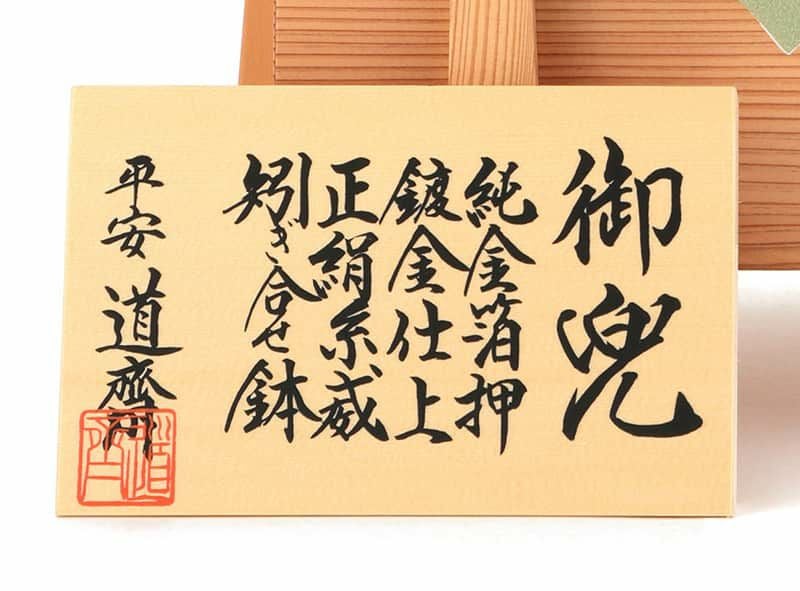 御兜
純金箔押
鍍金仕上
正絹糸威
矧ぎ合せ鉢
平安 道齋